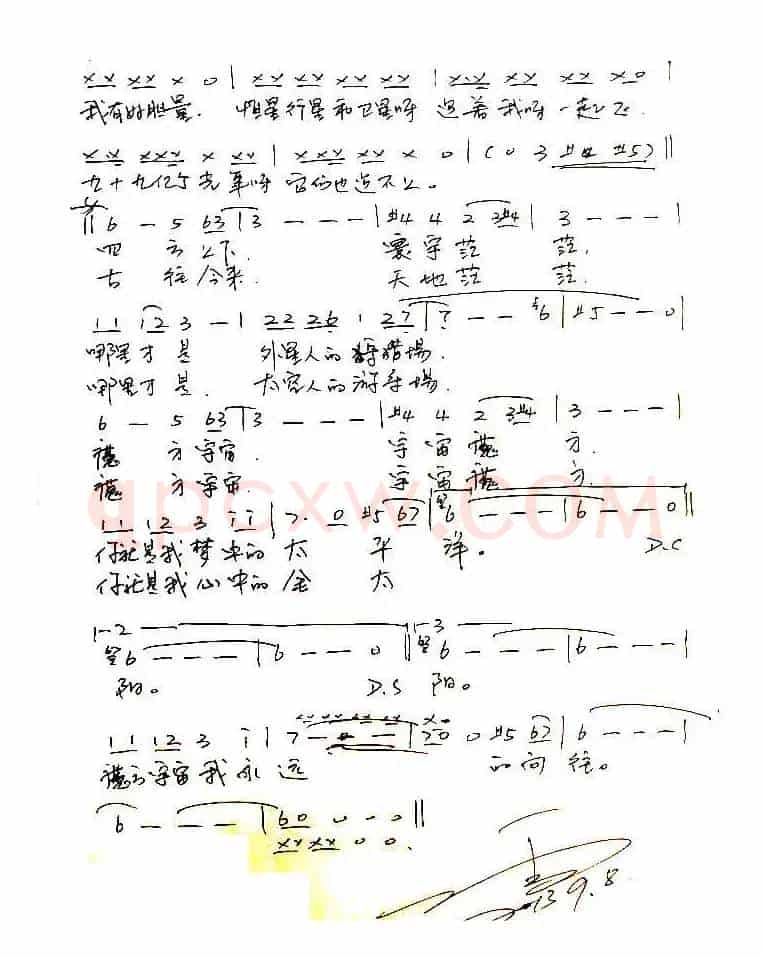 X X X X X 0 | X X X X X X X X | X·X X X X X X 0 |
我有好胆量. 恒星行星和卫星呀 追着我呀一起飞.
X X X X X X X X | X X X X X X 0 | (0 3 #4 #5) ||
九十九亿个光年呀 它们也追不上。
|| 6 — 5 63 | 3 — — — | #4 4 2 3#4 | 3 — — — |
四 方上下. 寰宇茫 茫.
古 往今来. 天地茫 茫.
11 12 3 — | 22 26 1 27 | 7 — — #6 | #5 — — 0 |
哪里才是 外星人的 場.
哪里才是. 太空人的游乐場.
6 — 5 63 | 3 — — — | #4 4 2 3#4 | 3 — — — |
方宇宙. 宇宙 方.
方宇宙. 宇宙 方.
11 12 3 | 7· 0 #5 67 | 6 — — — | 6 — — 0 ||
你就是我梦中的太 平 洋。 D.C
你就是我心中的金 太
1-2 1-3
6 — — — — | 6 — — 0 || 6 — — — | 6 — — — |
阳。 D.S 阳。
11 12 3 i | 7 — — — | 70 0 #5 67 | 6 — — — |
宇宙我永远 的向往。
6 — — — — | 60 0 — 0 ||
XX XX 0 0.
9.8
qpcxw.COM